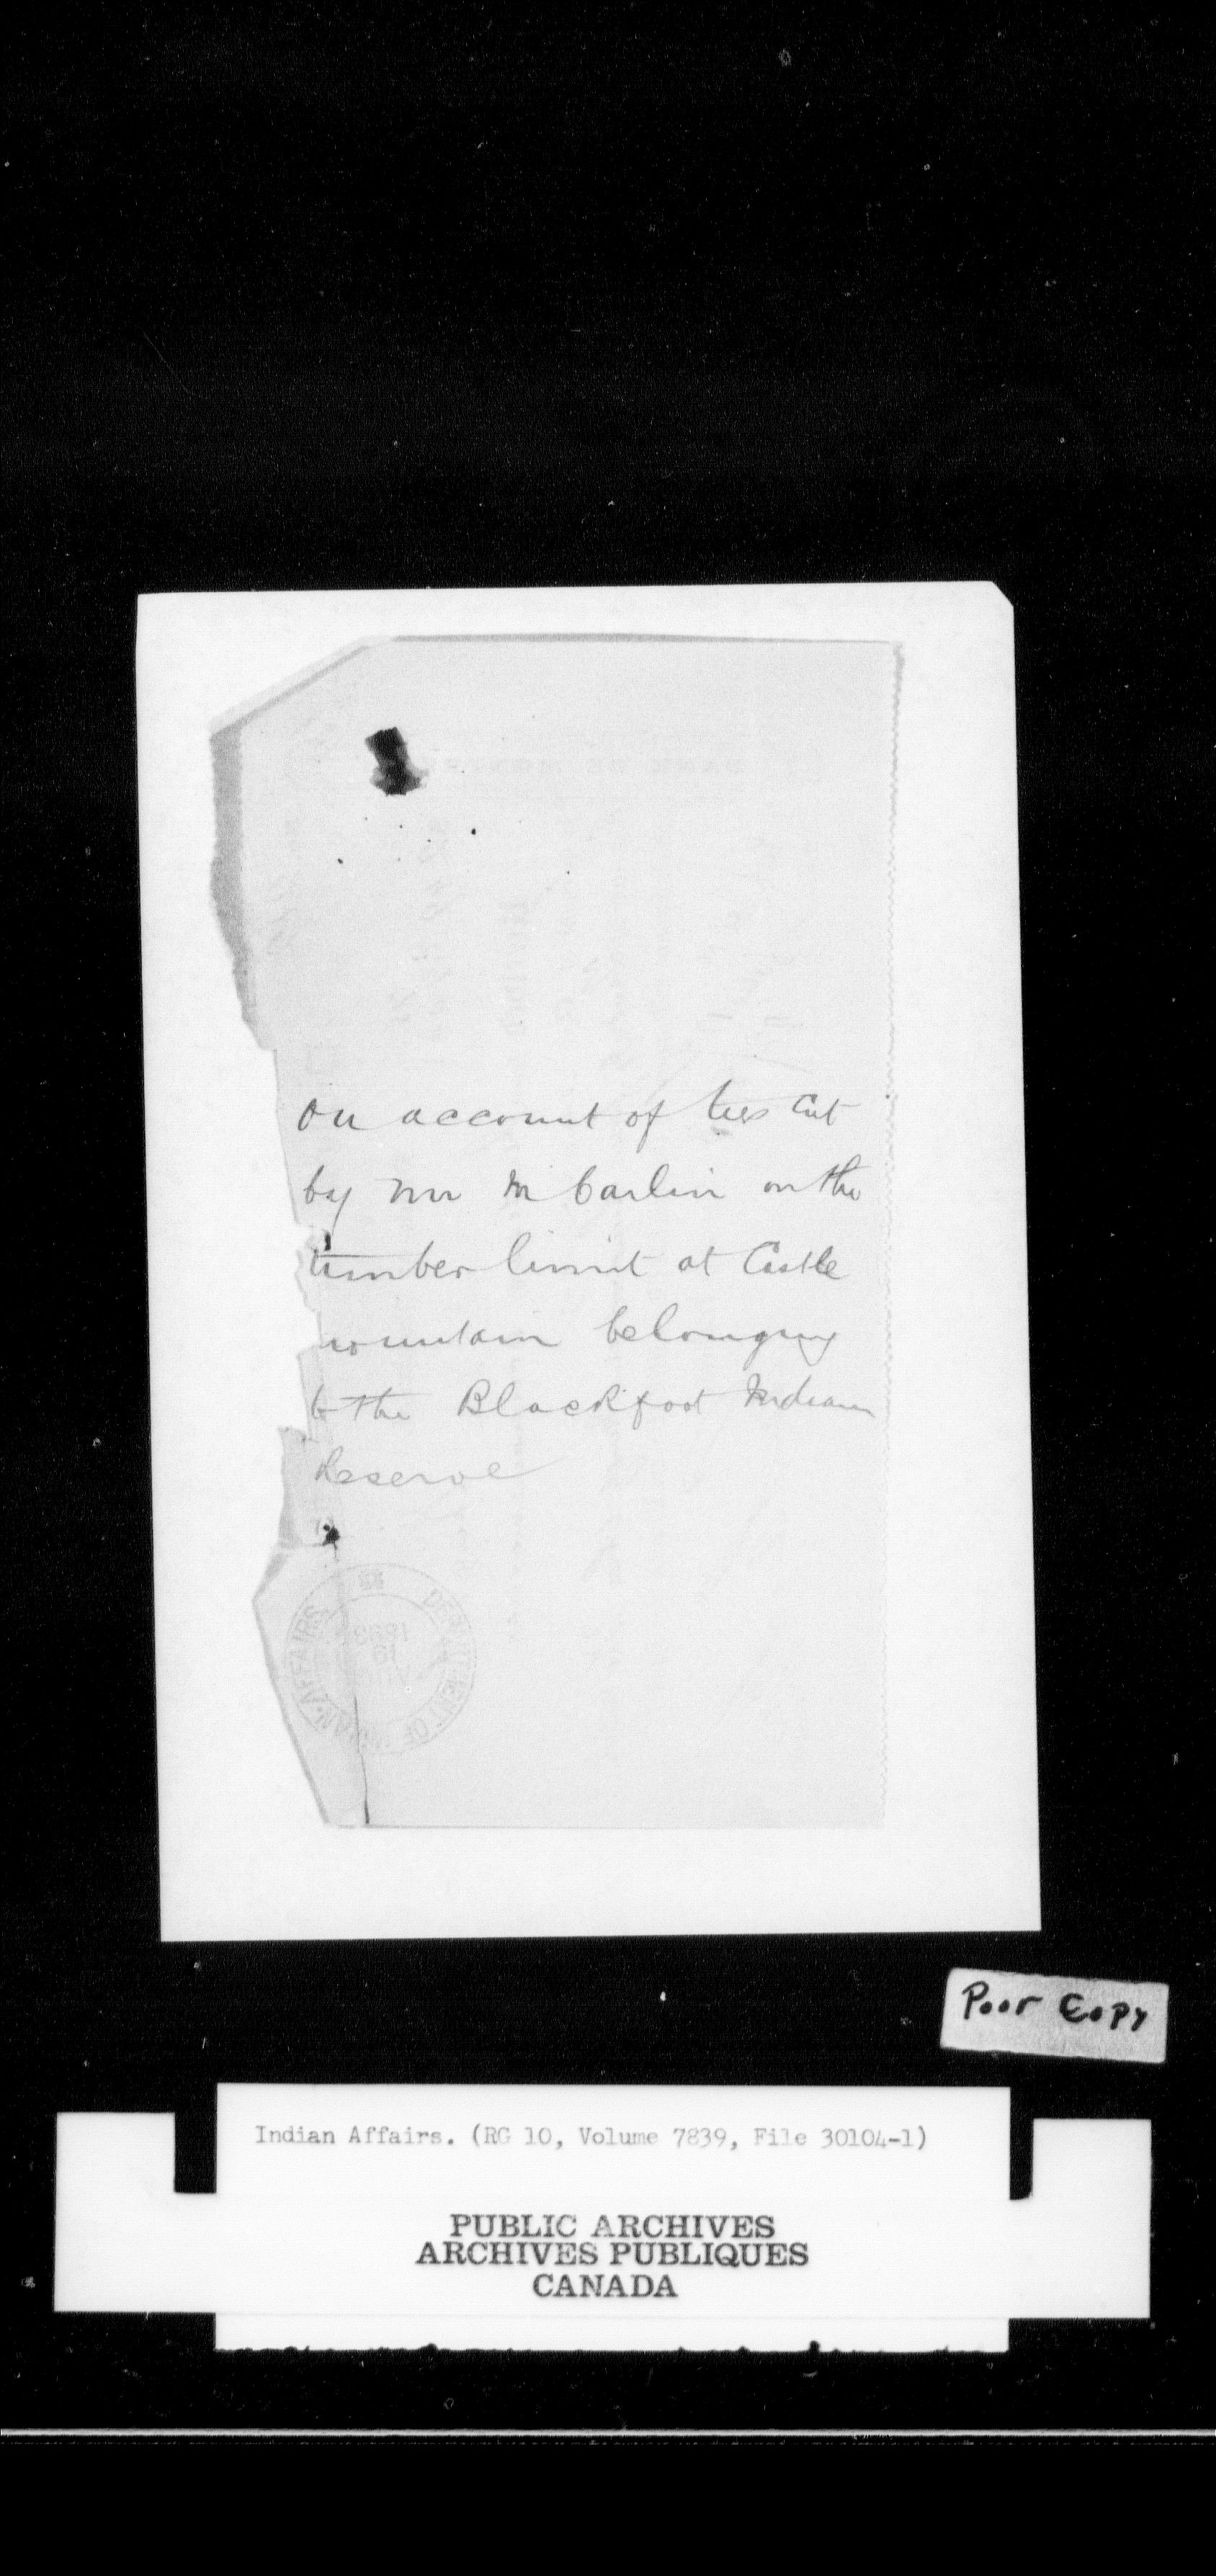 On account of ties cut
by Mr McCarlin on the
timber limit at Castle
mountain belonging
to the Blackfoot Indian
Reserve
DEPARTMENT OF INDIAN AFFAIRS
Poor Copy
Indian Affairs. (RG 10, Volume 7839, File 30104-1)
PUBLIC ARCHIVES
ARCHIVES PUBLIQUES
CANADA